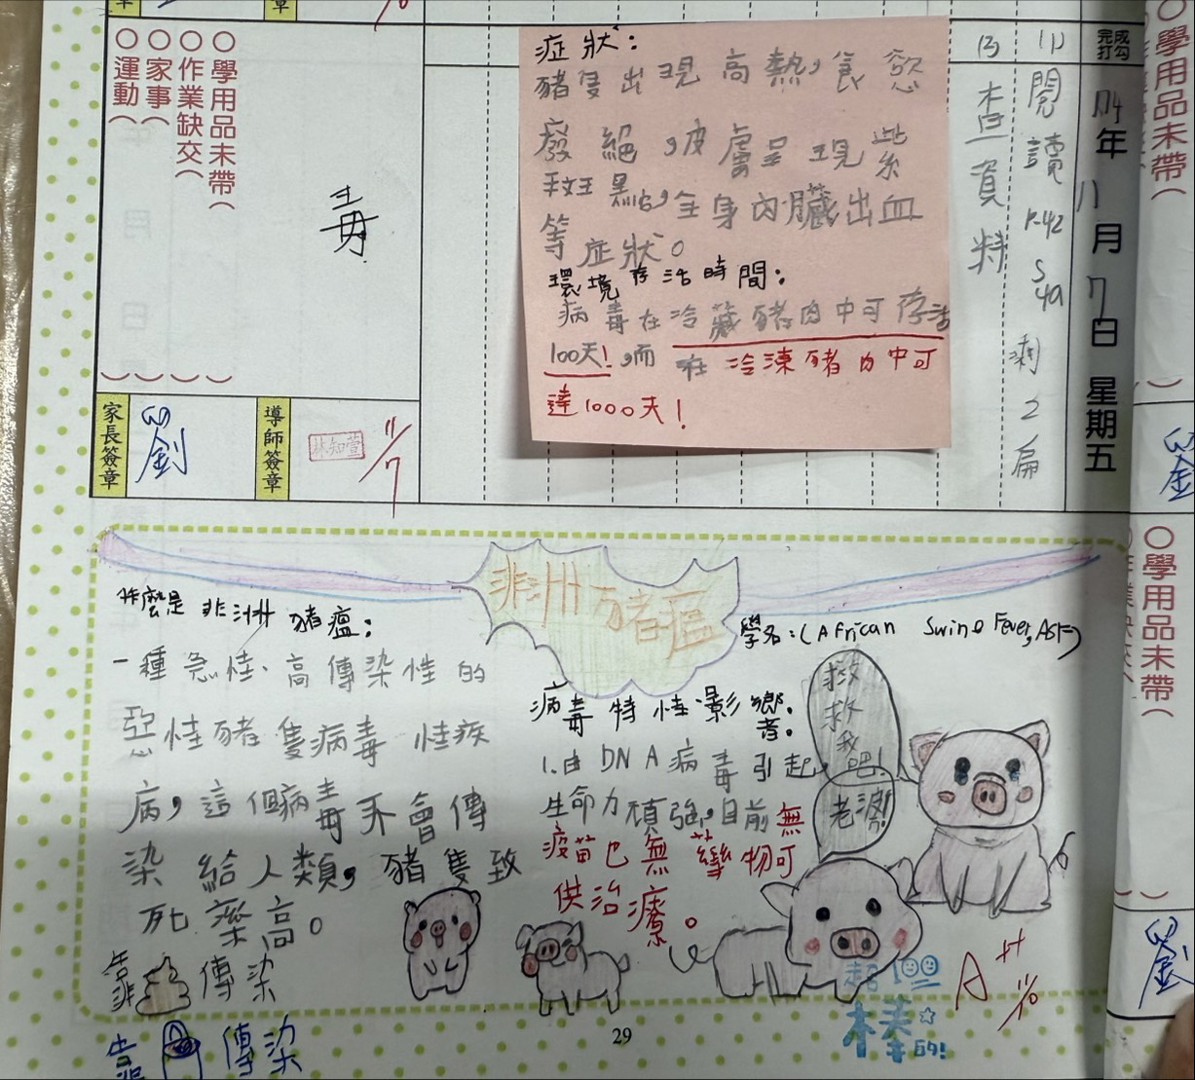 完成打勾
114年11月7日 星期五
(1)閱讀P.42 S4a 剩2扁
(2)查資料
症狀:
豬隻出現高熱,食慾
廢絕,皮膚呈現紫
等症狀。
全身內臟出血
環境存活時間:
病毒在冷藏豬肉中可存活
100天!,而在冷凍豬肉中可
達1000天!
毒
○學用品未帶( )
○作業缺交( )
○家事( )
○運動( )
導師簽章
林知萱
11/7
家長簽章
劉
非洲豬瘟
學名:(African Swine Fever, ASF)
什麼是非洲豬瘟:
一種急性、高傳染性的
惡性豬隻病毒性疾
病,這個病毒不會傳
染給人類,豬隻致
死率高。
靠 傳染
靠 傳染
病毒特性影響者。
1.由DNA病毒引起,
生命力頑強,目前無
疫苗也無藥物可
供治療。
救救我吧!
老婆!
超100
棒
的!
A++
11/10
29
○學用品未帶( )
○學用品未帶( )
劉